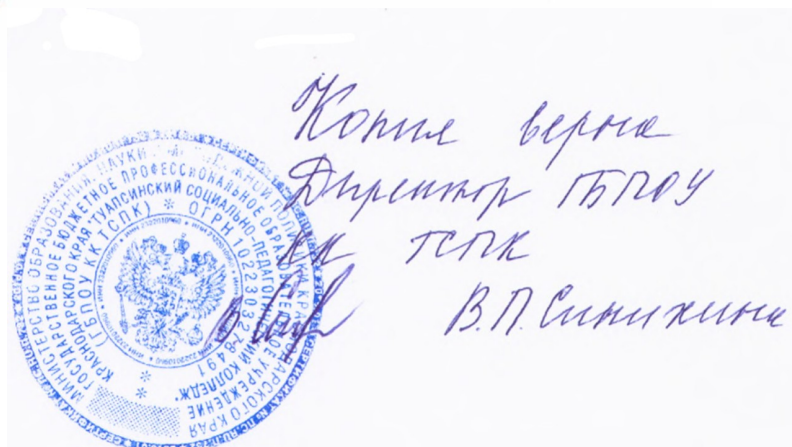 Копия верна
Директор ГБПОУ
КК ТСПК
В.П. Синихина
МИНИСТЕРСТВО ОБРАЗОВАНИЯ, НАУКИ И МОЛОДЕЖНОЙ ПОЛИТИКИ КРАСНОДАРСКОГО КРАЯ
ГОСУДАРСТВЕННОЕ БЮДЖЕТНОЕ ПРОФЕССИОНАЛЬНОЕ ОБРАЗОВАТЕЛЬНОЕ УЧРЕЖДЕНИЕ
КРАСНОДАРСКОГО КРАЯ "ТУАПСИНСКИЙ СОЦИАЛЬНО-ПЕДАГОГИЧЕСКИЙ КОЛЛЕДЖ"
(ГБПОУ КК ТСПК) * ОГРН 102